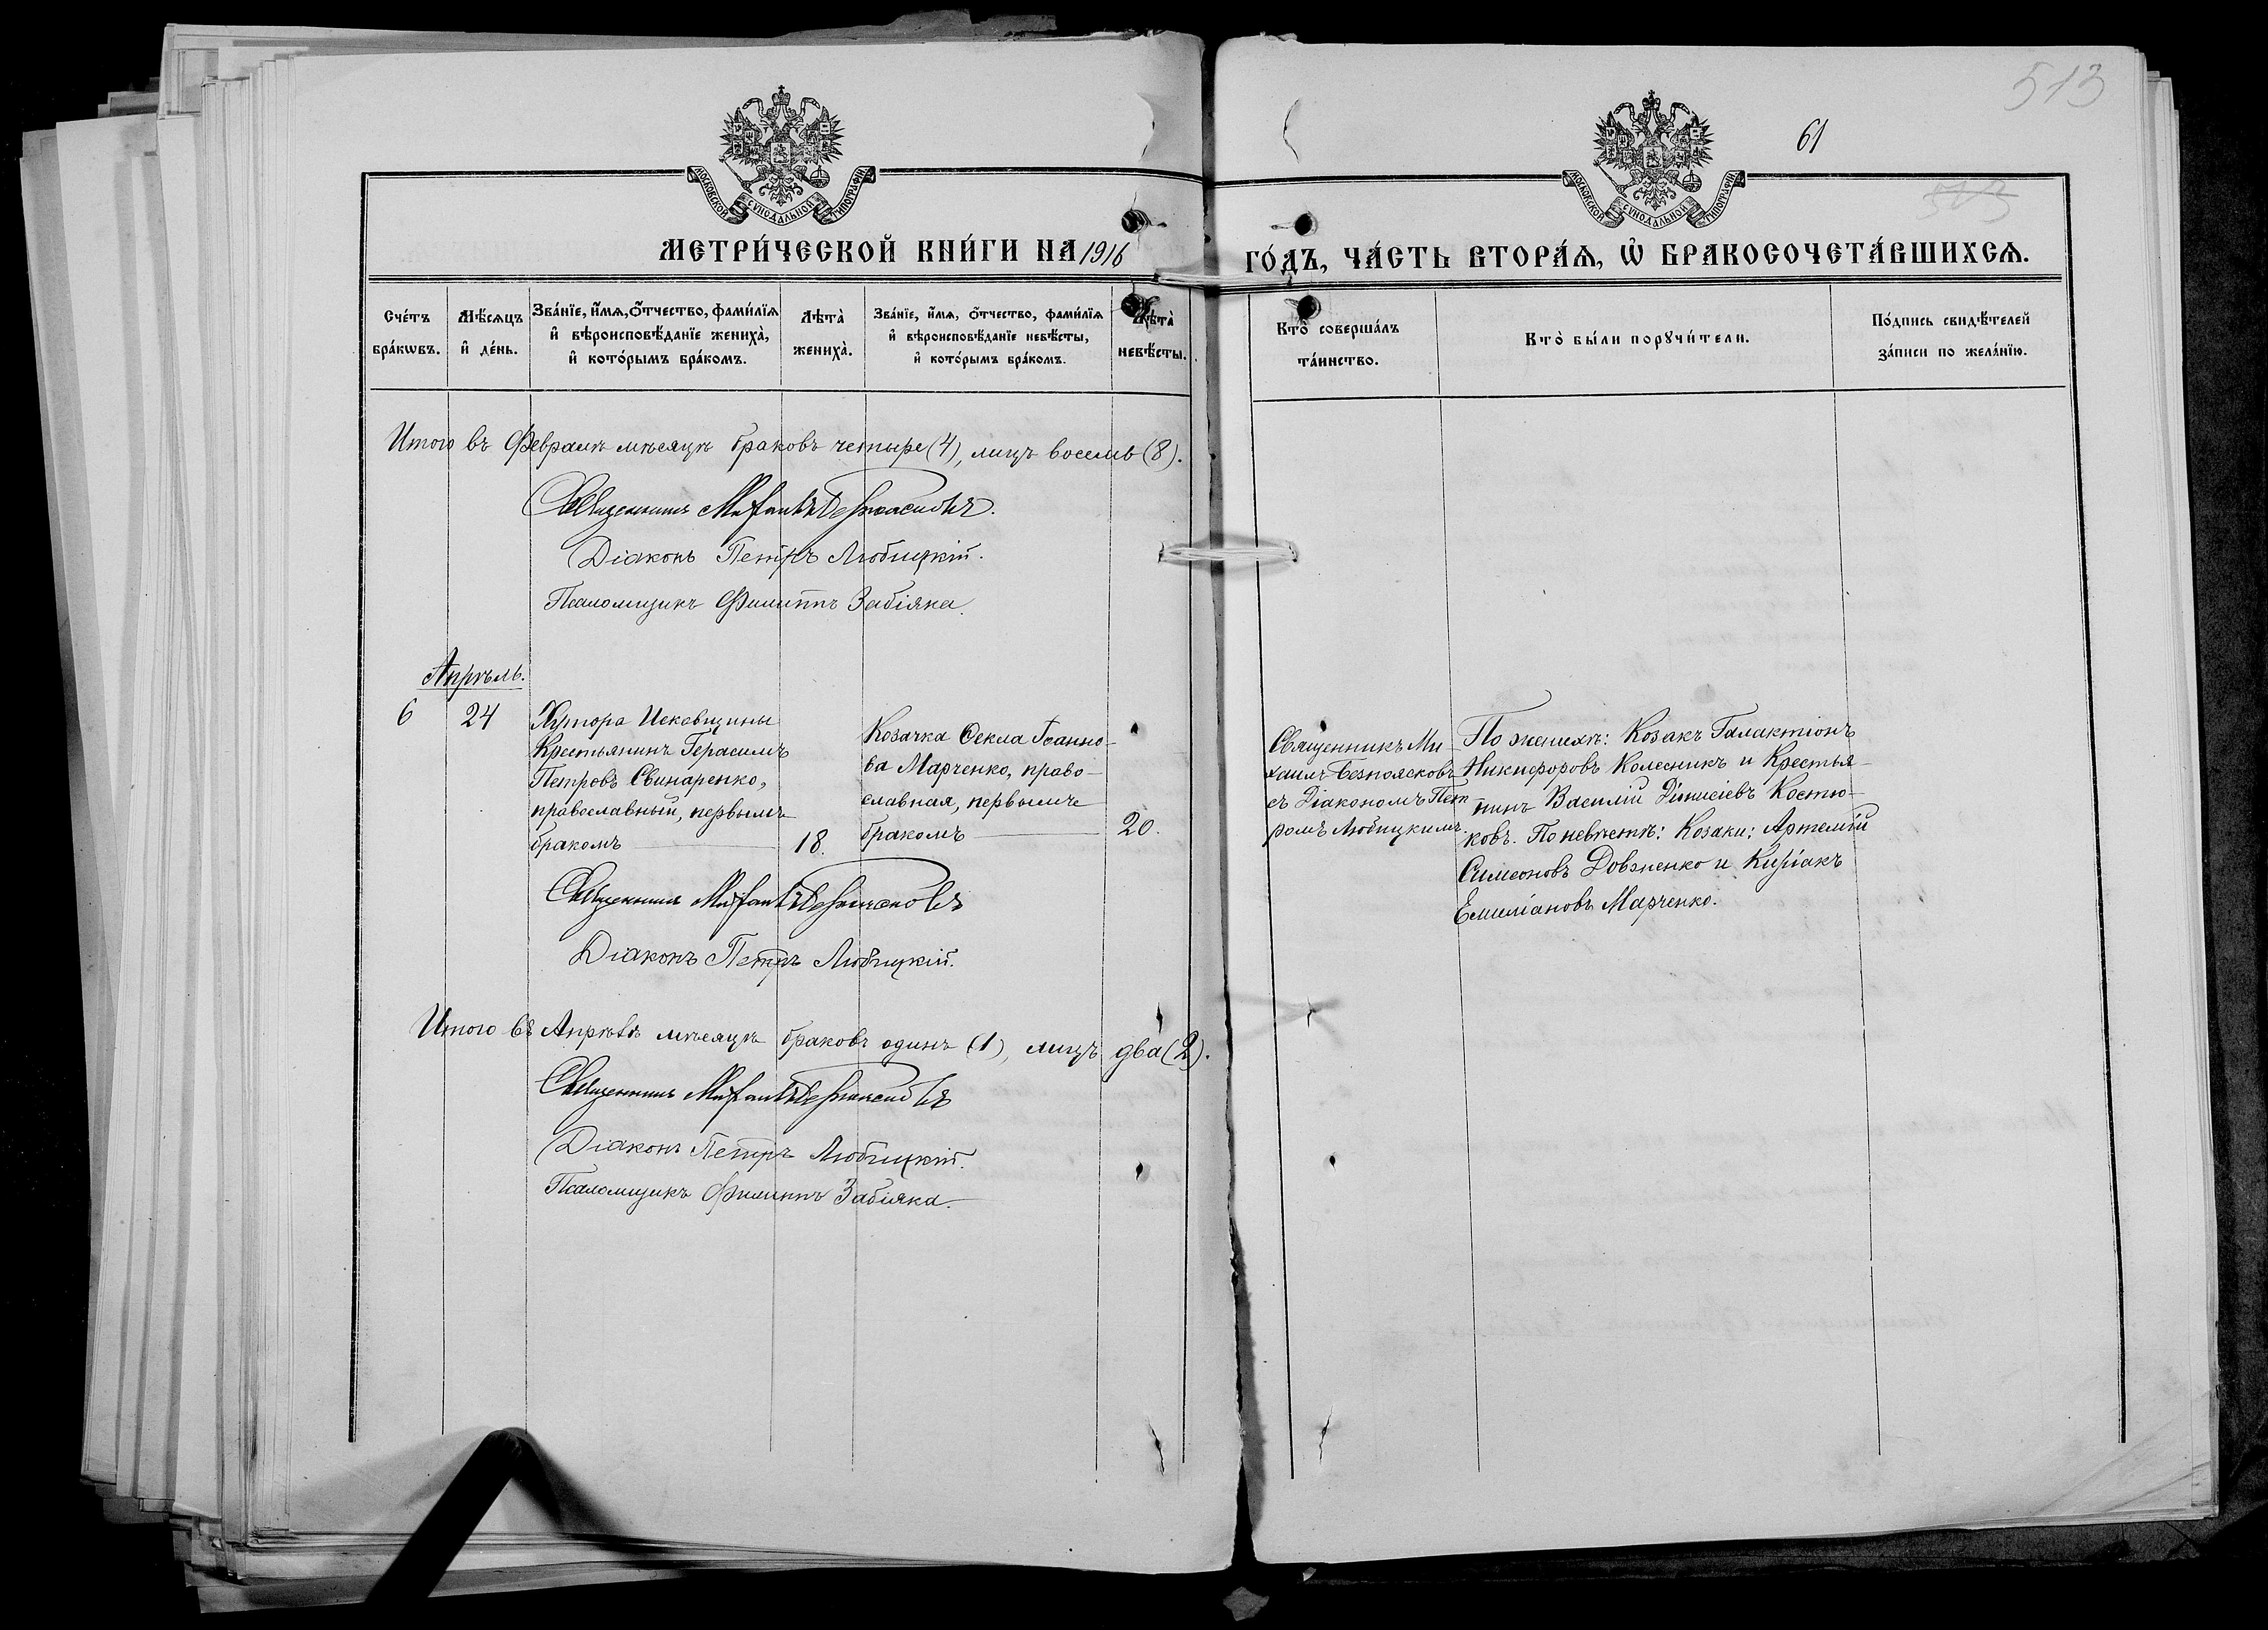 513
61
513
МОСКОВСКОЙ СѴНОДАЛЬНОЙ ТИПОГРАФІИ
МОСКОВСКОЙ СѴНОДАЛЬНОЙ ТИПОГРАФІИ
МЕТРИ́ЧЕСКОЙ КНИ́ГИ НА 1916
ГО́ДЪ, ЧА́СТЬ ВТОРА́Ѧ, Ѡ҆ БРАКОСОЧЕТА́ВШИХСѦ.
Сче́тъ
бра́кѡвъ.
Мѣ́сяцъ
и҆ де́нь.
Зва́нїе, и҆́мѧ, ѻ҆́тчество, фами́лїѧ
и҆ вѣроисповѣ́данїе жениха̀,
и҆ кото́рымъ бра́комъ.
Лѣта̀
жениха̀.
Зва́нїе, и҆́мѧ, ѻ҆́тчество, фами́лїѧ
и҆ вѣроисповѣ́данїе невѣ́сты,
и҆ кото́рымъ бра́комъ.
Лѣта̀
невѣ́сты.
Кто̀ соверша́лъ
та́инство.
Кто̀ бы́ли порꙋчи́тели.
По́дпись свидѣ́телей
за́писи по жела́нїю.
Итого въ Февралѣ мѣсяцѣ браковъ четыре (4), лицъ восемь (8).
Священникъ Михаилъ Безпоясковъ.
Діаконъ Петръ Любицкій.
Псаломщикъ Филиппъ Забіяка.
Апрѣль.
6
24
Хутора Исковщины
Крестьянинъ Герасимъ
Петровъ Свинаренко,
православный, первымъ
бракомъ
18.
Козачка Ѳекла Іоанно-
ва Марченко, право-
славная, первымъ
бракомъ
20.
Священникъ Ми-
хаилъ Безпоясковъ
съ Діакономъ Пет-
ромъ Любицкимъ.
По женихѣ: Козакъ Галактіонъ
Никифоровъ Колесникъ и Крестья-
нинъ Василій Діонисіевъ Костю-
ковъ. По невѣстѣ: Козаки: Артемій
Симеоновъ Довженко и Киріакъ
Емиліановъ Марченко.
Священникъ Михаилъ Безпоясковъ
Діаконъ Петръ Любицкій.
Итого въ Апрѣлѣ мѣсяцѣ браковъ одинъ (1), лицъ два (2).
Священникъ Михаилъ Безпоясковъ
Діаконъ Петръ Любицкій.
Псаломщикъ Филиппъ Забіяка.